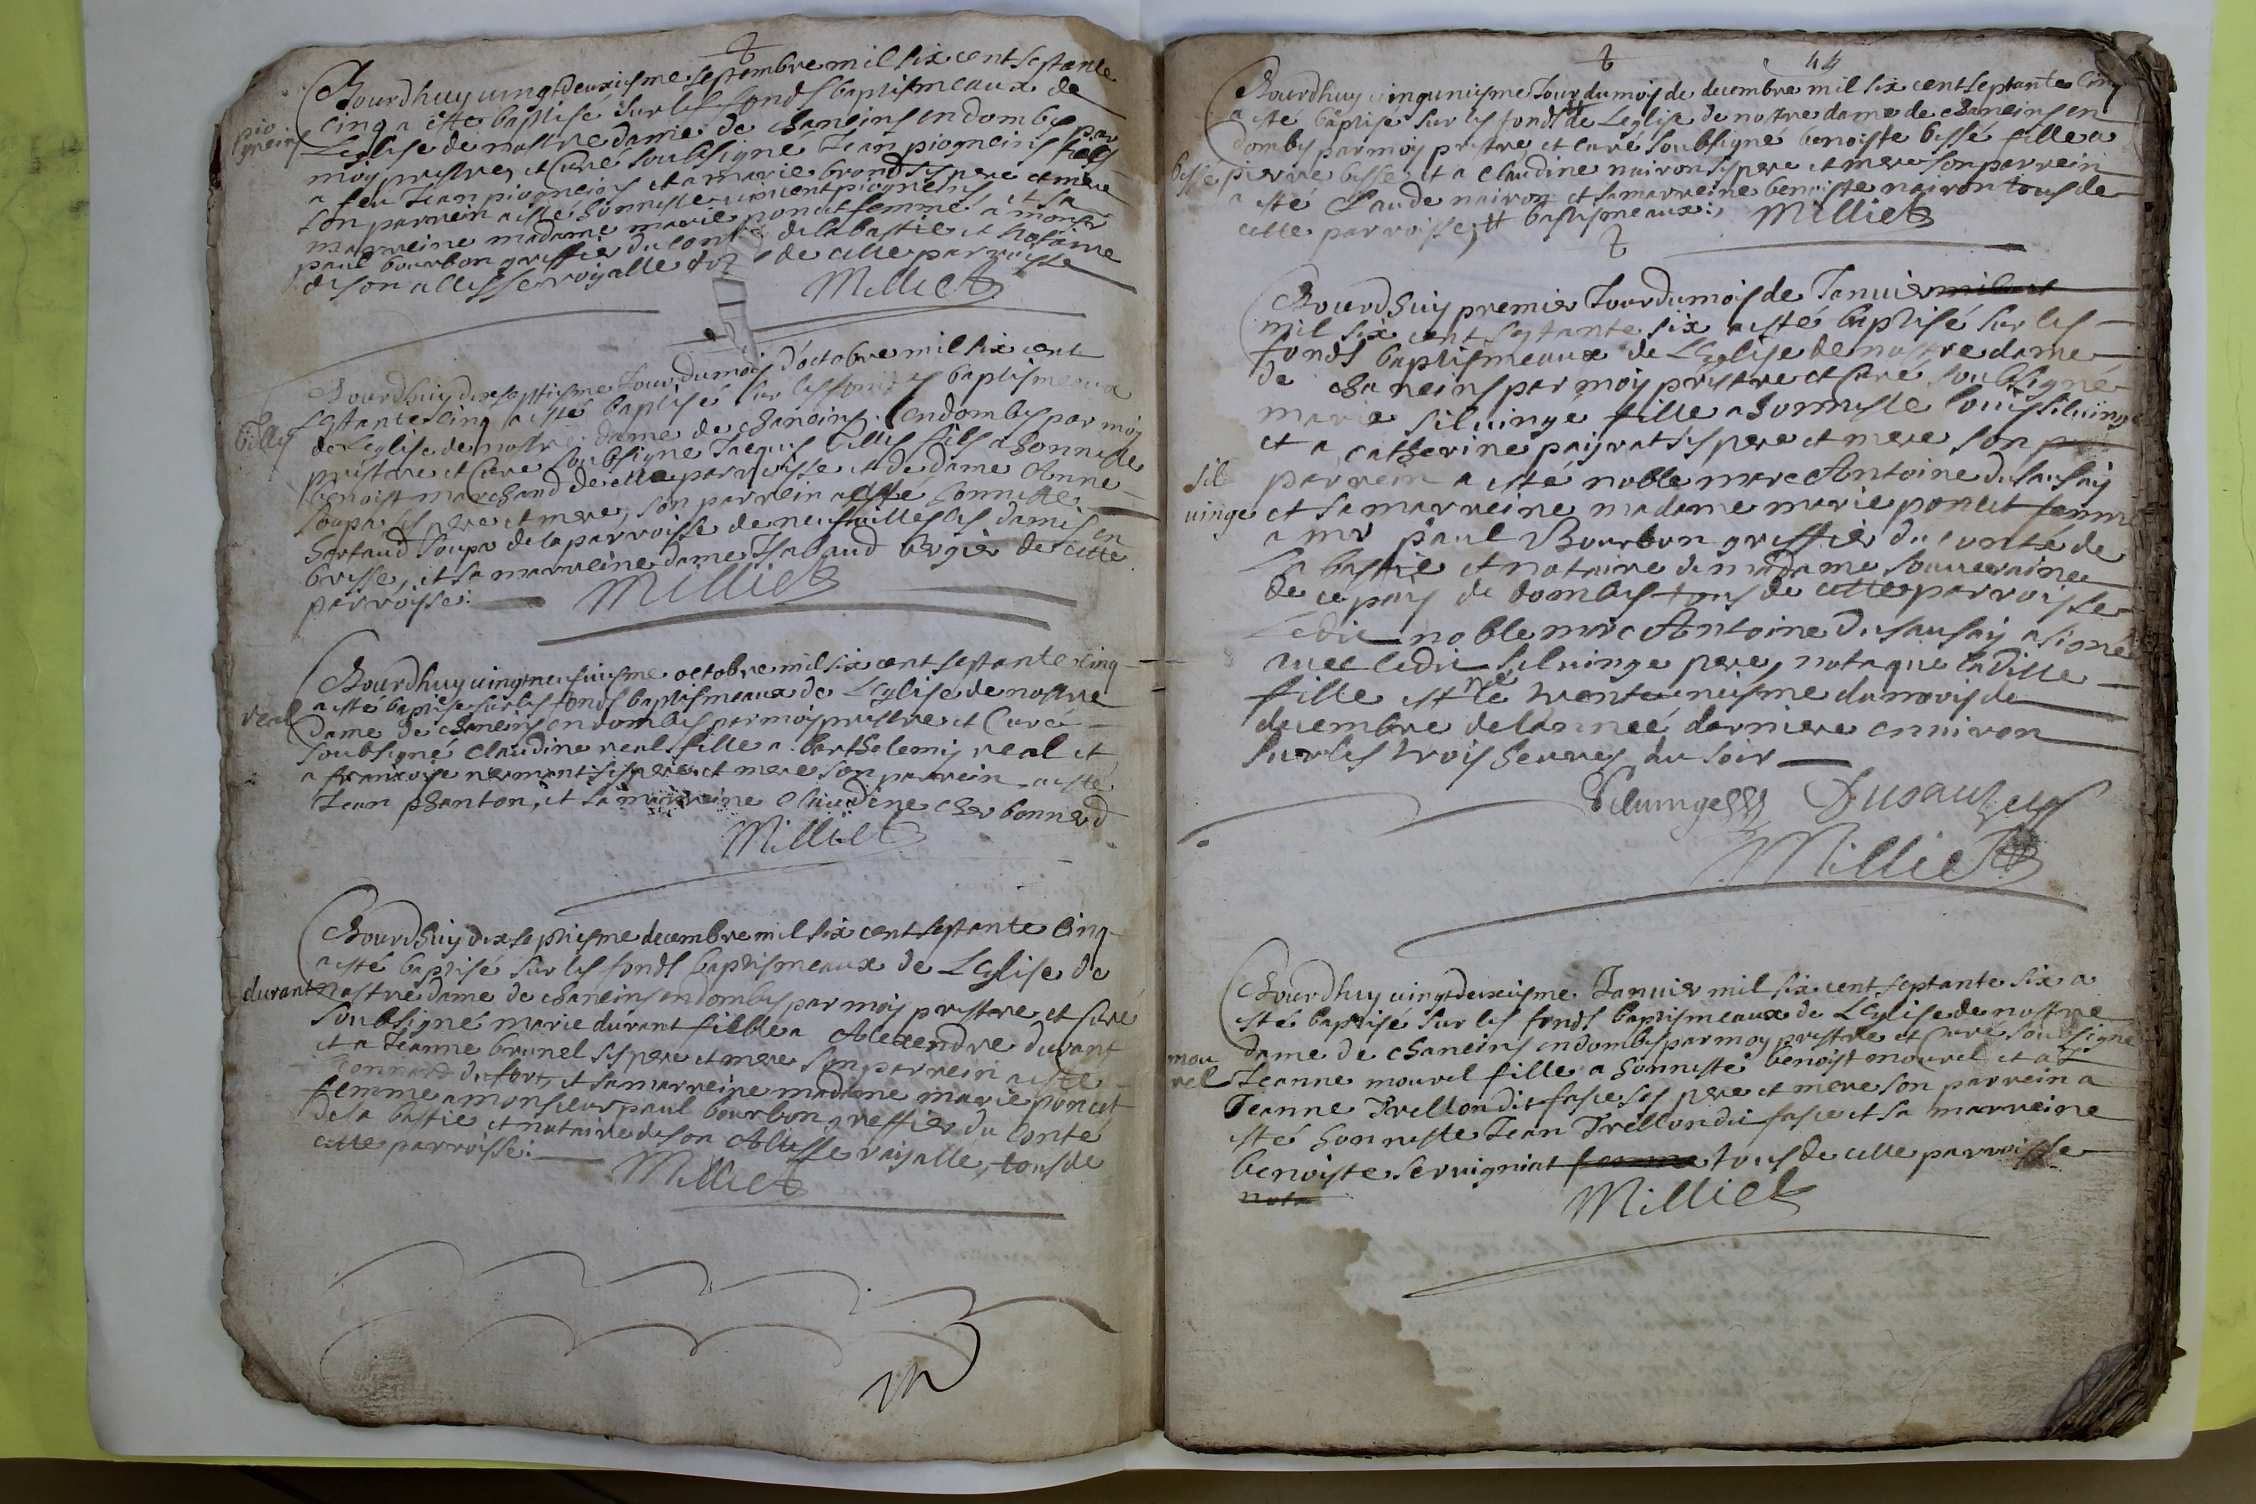 Bourdhuy vingtdeuxiesme septembre mil six cent septante
cinq a este baptisé sur les fonds baptismeaux de
pio
gneins
Leglise de nostre dame de chaneins en dombes par
moy prestre et Curé soubsigné Jean piogneins fils
a feu Jean piogneins et a marie brond ses pere et mere
son parrein a esté honneste vincent piogneins et sa
marreine madame marie poncet femme a monsr
paul bourbon greffier du conté de la bastie et notaire
de son allesse royalle tous de cette parroisse
Milliet
Bourdhuy dixseptiesme Jour du mois d'octobre mil six cent
Septante cinq a esté baptisé sur les fonds baptismeaux
Tillet
de Leglise de nostre dame de chaneins en dombes par moy
prestre et Curé soubsigné Jaques Tillet fils a honneste
benoist marchand de cette parroisse et de dame Anne
Soupa ses pere et mere, son parrein a esté honneste
Soupa de la parroisse de neufvilles les dames en
bresse, et sa marreine dame bergier de cette
parroisse:
Milliet
Bourdhuy vingtneufuiesme octobre mil six cent septante cinq
a esté baptisé sur les fonds baptismeaux de Leglise de nostre
real
dame de chaneins en dombes par moy prestre et Curé
soubsigné claudine real fille a barthelemy real et
a francoise nermant ses pere et mere son parrein a esté
Jean phanton, et sa marreine claudine cherbonnerd
Milliet
Bourdhuy dixseptiesme decembre mil six cent septante Cinq
a esté baptisé sur les fonds baptismeaux de Leglise de
durant
nostre dame de chaneins en dombes par moy prestre et Curé
soubsigné marie durant fille a Alexendre durant
et a Jeanne brunel ses pere et mere son parrein a esté
dufort, et sa marreine madame marie poncet
femme a monsieur paul bourbon greffier du Conté
de la bastie et notaire de son Altesse royalle, tous de
cette parroisse:
Milliet
44
Bourdhuy vingtuniesme Jour du mois de decembre mil six cent septante Cinq
a esté baptisé sur les fonds # de Leglise de nostre dame de chaneins en
dombes par moy prestre et curé soubsigné benoiste bessé fille a
bessé
pierre besse et a claudine nairon ses pere et mere son parrein
a esté Claude nairon et sa marreine benoiste nairon tous de
cette parroisse, # baptismeaux:
Milliet
Bourdhuy premier Jour du mois de Januier
mil six cent septante six a esté baptisé sur les
fonds baptismeaux de Leglise de nostre dame
de chaneins par moy prestre et Curé soubsigné
marie siluinge fille a honneste Louis siluinge
et a catherine payrat ses pere et mere son
sil
uinge
parrein a esté noble marc Antoine dusausay
et sa marreine madame marie poncet femme
a mr paul Bourbon greffier du conté de
La bastie et notaire de madame souueraine
de ce pays de dombes tous de cette parroisse
Ledit noble marc Antoine dusausay a signé
auec ledit siluinge pere, nota que laditte
fille est née le trenteuniesme du mois de
decembre de lannée derniere enuiron
sur les trois heures du soir
Siluinge Dusauzey
Milliet
Bourdhuy vingtdeuxiesme Januier mil six cent septante six a
esté baptisé sur les fonds baptismeaux de Leglise de nostre
dame de chaneins en dombes par moy prestre et Curé soubsigné
mou
rel
Jeanne mourel fille a honneste benoist mourel et a
Jeanne Trellon dit fasce ses pere et mere son parrein a
esté honneste Jean Trellon dit fasce et sa marreine
benoiste seruigniat femme tous de cette parroisse
nota
Milliet